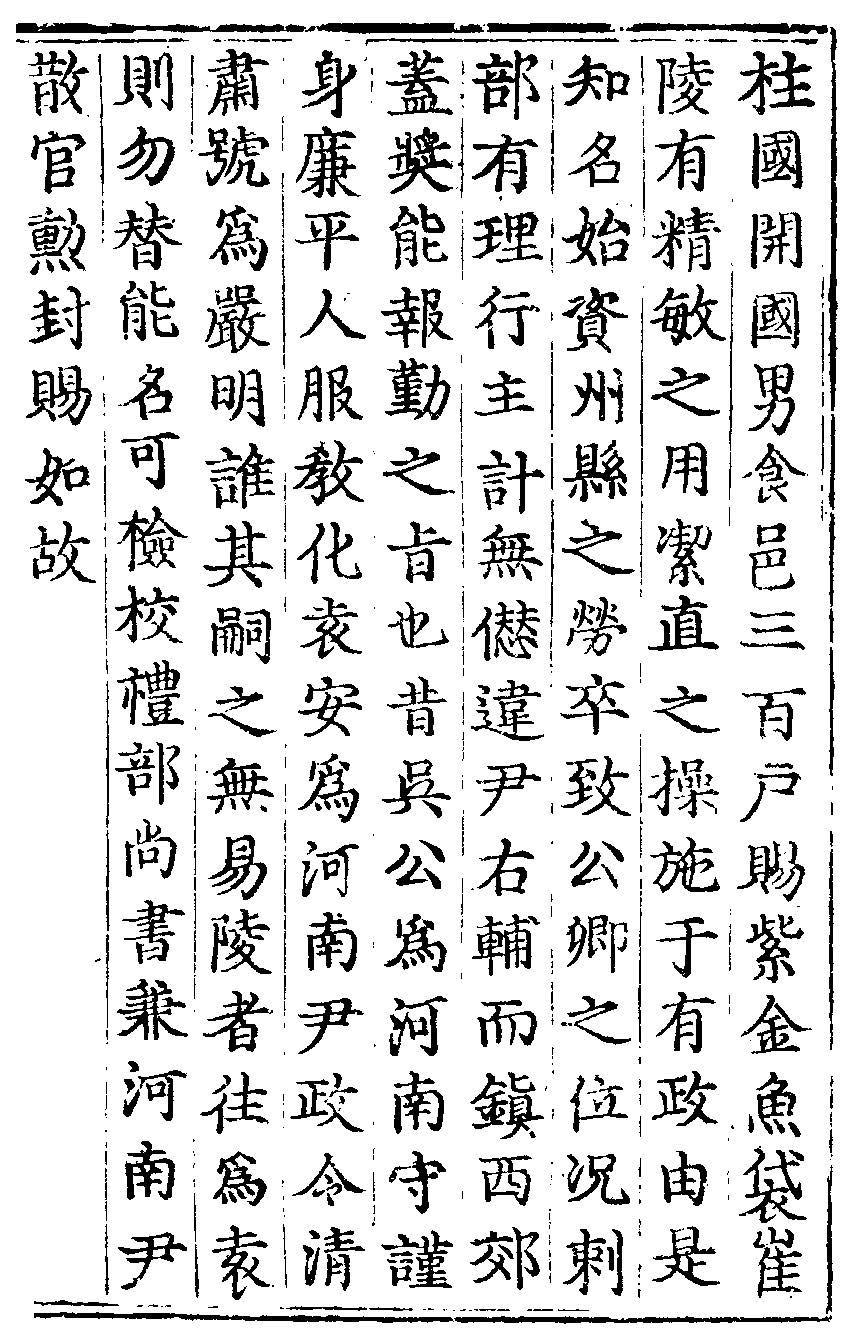 柱國開國男食邑三百戶賜紫金魚袋崔
陵有精敏之用潔直之操施于有政由是
知名始資州縣之勞卒致公卿之位況刺
部有理行主計無僁違尹右輔而鎮西郊
蓋獎能報勤之旨也昔吳公爲河南守謹
身廉平人服教化袁安爲河南尹政令清
肅號爲嚴明誰其嗣之無易陵者往爲袁
則勿替能名可檢校禮部尚書兼河南尹
散官勳封賜如故